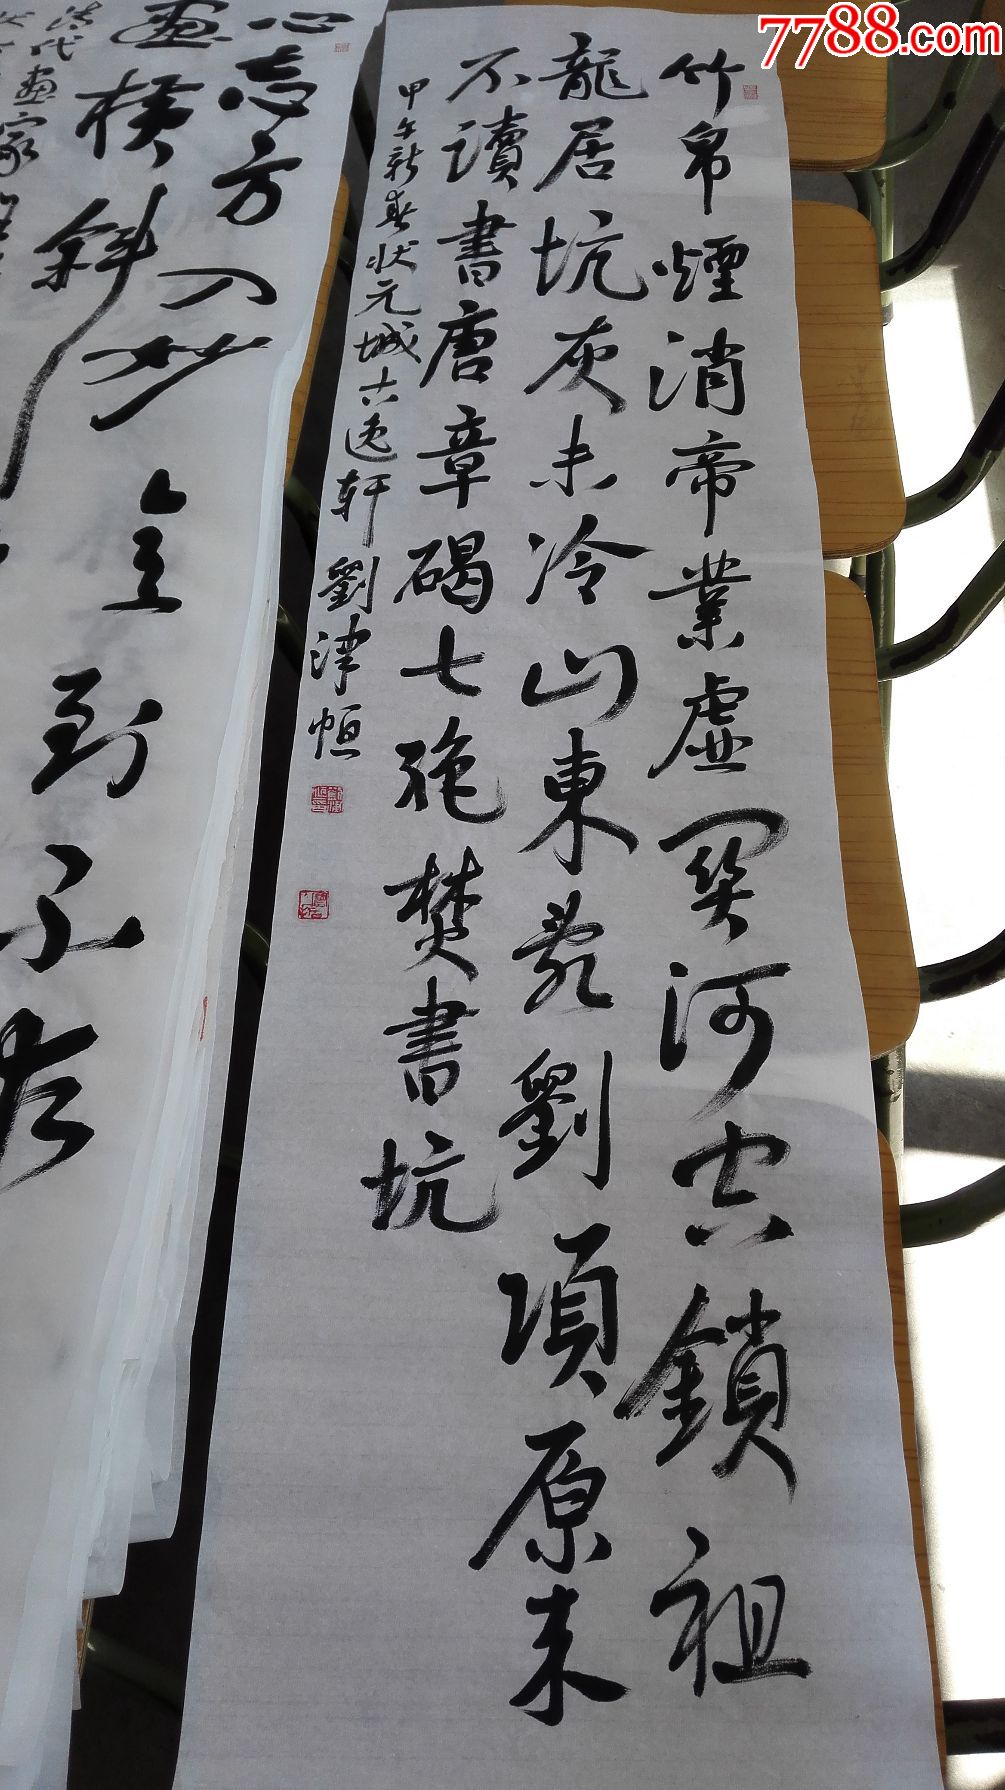 7788.com
竹帛煙消帝業虛關河空鎖祖
龍居坑灰未冷山東亂劉項原来
不讀書唐章碣七绝焚書坑
甲午新春状元城六逸轩劉津恒
方入妙
到不
斜
清代畫家